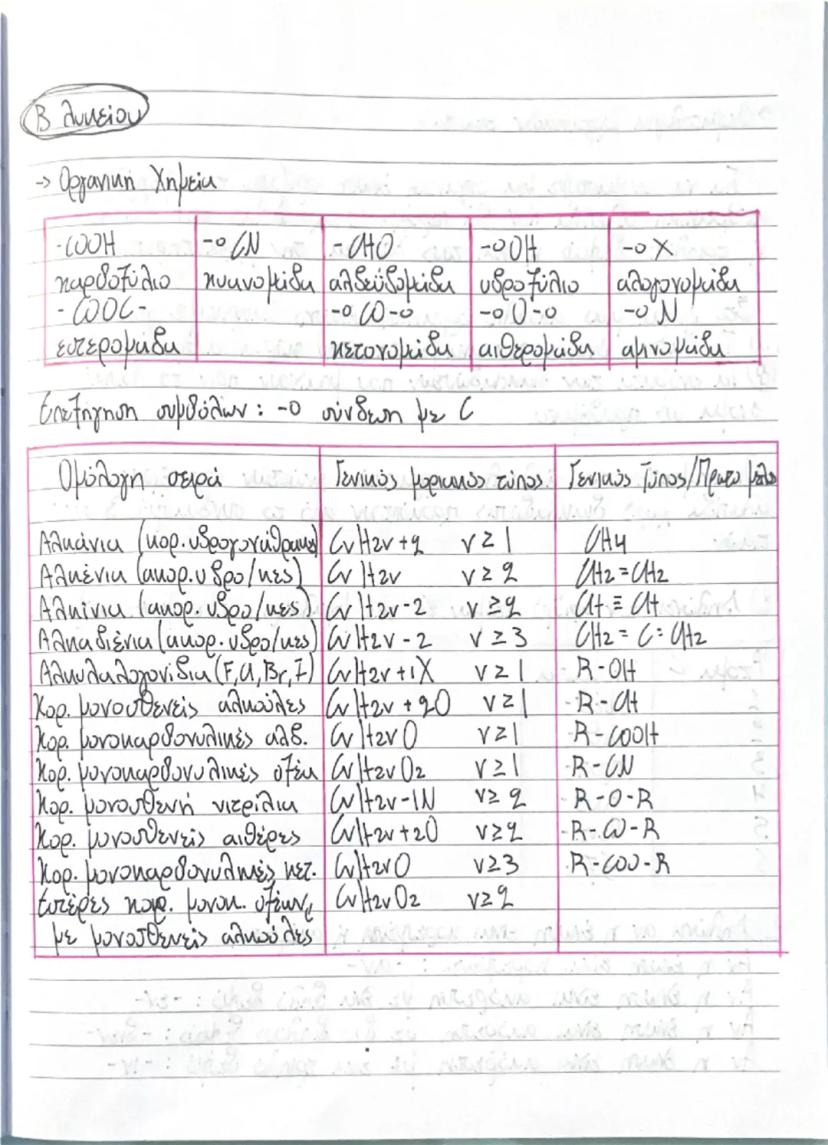 Β Λυκείου
→ Οργανική Χημεία
-COOH -ο CN -CHO -ο OH -ο X
καρβοξύλιο κυανομάδα αλδεϋδομάδα υδροξύλιο αλογονομάδα
-COOC- -ο CO-ο -ο O-ο -ο N
εστερομάδα κετονομάδα αιθερομάδα αμινομάδα
Επεξήγηση συμβόλων : -ο σύνδεση με C
Ομόλογη σειρά Γενικός μοριακός τύπος Γενικός Τύπος/Πρώτο μέλος
Αλκάνια (κορ. υδρογονάθρακες) CνH2ν+2 ν≥1 CH4
Αλκένια (ακορ. υδρο/κες) CνH2ν ν≥2 CH2=CH2
Αλκίνια (ακορ. υδρο/κες) CνH2ν-2 ν≥2 CH≡CH
Αλκαδιένια (ακορ. υδρο/κες) CνH2ν-2 ν≥3 CH2=C=CH2
Αλκυλαλογονίδια (F,Cl,Br,I) CνH2ν+1X ν≥1 R-OH
Κορ. μονοσθενείς αλκοόλες CνH2ν+2O ν≥1 -R-CH
Κορ. μονοκαρβονυλικές αλδ. CνH2νO ν≥1 R-COOH
Κορ. μονοκαρβονυλικές οξέα CνH2νO2 ν≥1 -R-CN
Κορ. μονοσθενή νιτρίλια CνH2ν-1N ν≥2 R-O-R
Κορ. μονοσθενείς αιθέρες CνH2ν+2O ν≥2 R-CO-R
Κορ. μονοκαρβονυλικές κετ. CνH2νO ν≥3 R-COO-R
Εστέρες κορ. μονοκ. οξέων CνH2νO2 ν≥2
με μονοσθενείς αλκοόλες